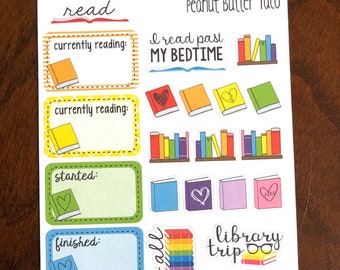 read
Peanut Butter Taco
currently reading:
I read past
MY BEDTIME
currently reading:
started:
finished:
library
trip